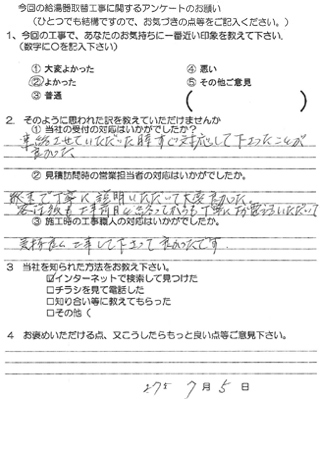 今回の給湯器取替工事に関するアンケートのお願い
(ひとつでも結構ですので、お気づきの点等をご記入ください。)
1、今回の工事で、あなたのお気持ちに一番近い印象を教えて下さい.
(数字に○を記入下さい)
① 大変よかった ④ 悪い
② よかった ⑤ その他ご意見
③ 普通 ( )
2. そのように思われた訳を教えていただけませんか
① 当社の受付の対応はいかがでしたか?
連絡させていただいた時すぐ対応して下さったことが
良かった.
② 見積訪問時の営業担当者の対応はいかがでしたか。
丁寧に説明いただいて大変良かった.
工事前日
③ 施工時の工事職人の対応はいかがでしたか?
工事して下さって良かったです.
3 当社を知られた方法をお教え下さい。
☑インターネットで検索して見つけた
□チラシを見て電話した
□知り合い等に教えてもらった
□その他 (
4 お褒めいただける点、又こうしたらもっと良い点等ご意見下さい。
275 7 月 5 日